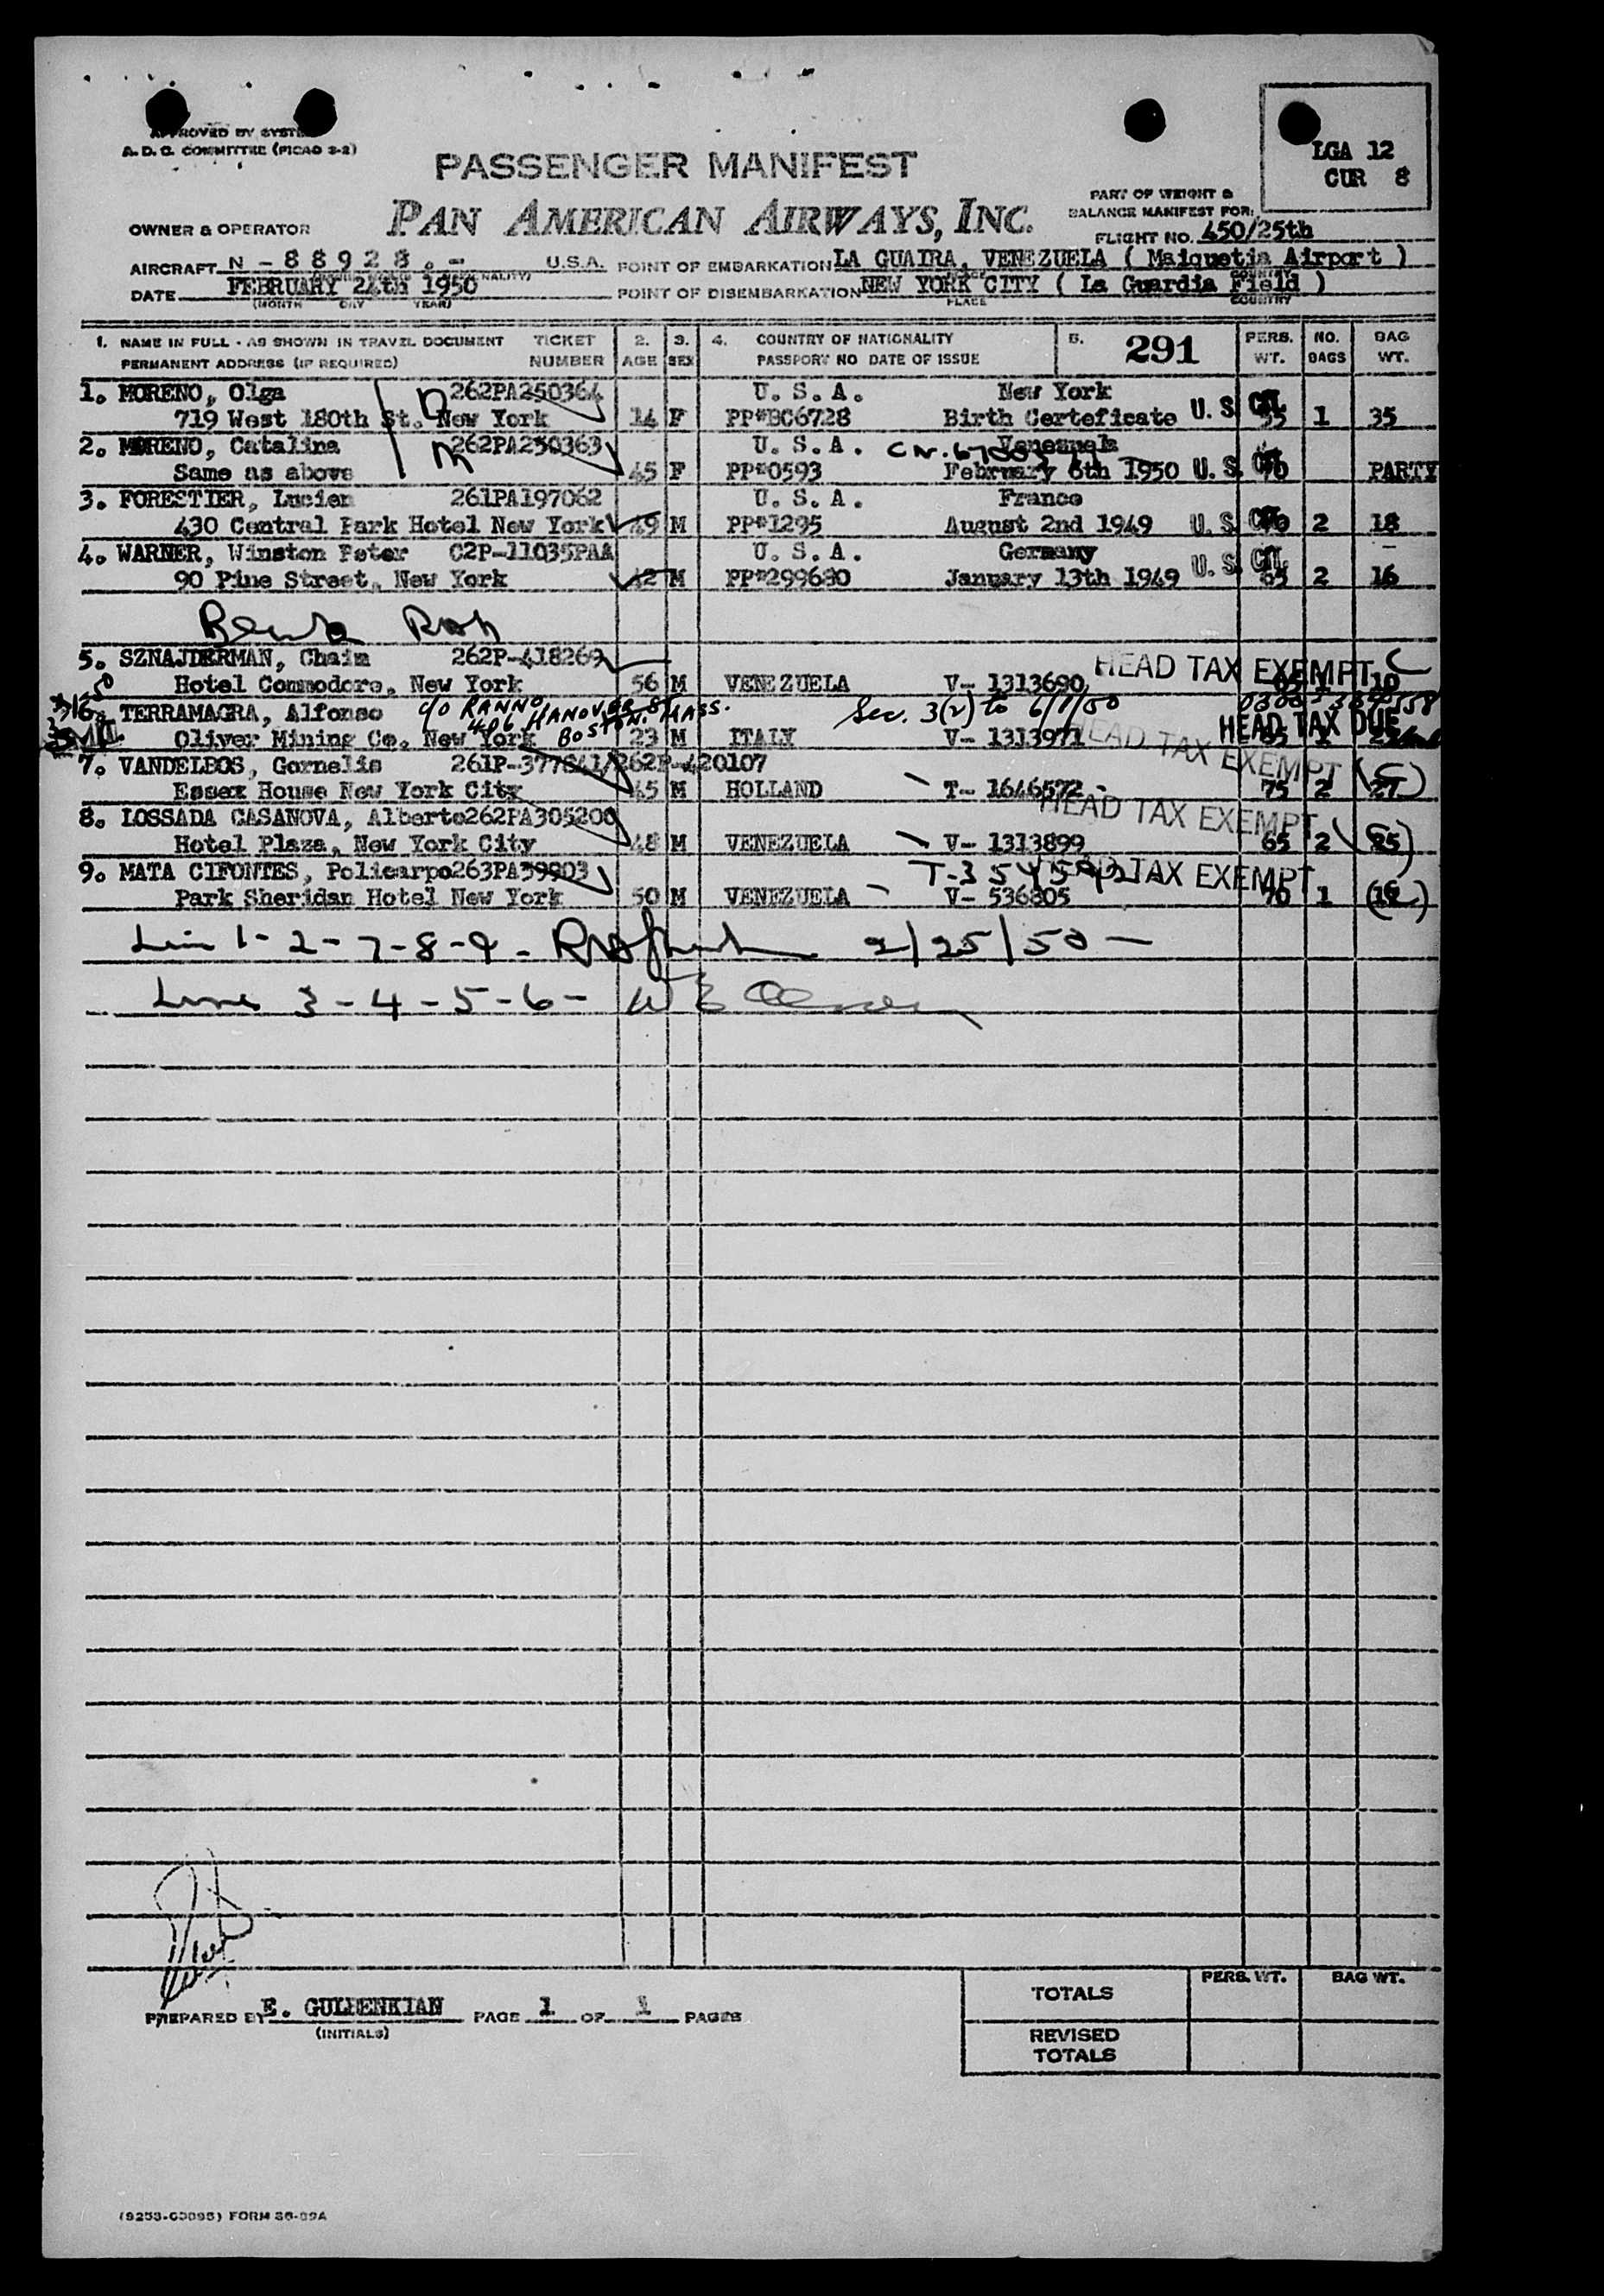 APPROVED BY SYSTEM
A. D. C. COMMITTEE (PICAO 2-2)
LGA 12
CUR 8
PASSENGER MANIFEST
PART OF WEIGHT &
BALANCE MANIFEST FOR:
OWNER & OPERATOR PAN AMERICAN AIRWAYS, INC.
FLIGHT NO. 450/25th
AIRCRAFT N - 8 8 9 2 8 . - U.S.A. POINT OF EMBARKATION LA GUAIRA, VENEZUELA ( Maiquetia Airport )
DATE FEBRUARY 24th 1950 POINT OF DISEMBARKATION NEW YORK CITY ( La Guardia Field )
(MONTH DAY YEAR) PLACE COUNTRY
1. NAME IN FULL - AS SHOWN IN TRAVEL DOCUMENT TICKET 2. 3. 4. COUNTRY OF NATIONALITY 5. 291 PERS. NO. BAG
PERMANENT ADDRESS (IF REQUIRED) NUMBER AGE SEX PASSPORT NO DATE OF ISSUE WT. BAGS WT.
1. MORENO, Olga 262PA250364 U. S. A. New York
719 West 180th St. New York 14 F PP#BC6728 Birth Certeficate U. S. CIT. 55 1 35
2. MORENO, Catalina 262PA250363 U. S. A. Venezuela
Same as above 45 F PP#0593 February 6th 1950 U. S. CIT. 70 PARTY
3. FORESTIER, Lucien 261PA197062 U. S. A. France
430 Central Park Hotel New York 49 M PP#1295 August 2nd 1949 U. S. CIT. 2 18
4. WARNER, Winston Peter C2P-11035PAA U. S. A. Germany
90 Pine Street, New York 42 M PP#299680 January 13th 1949 U. S. CIT. 65 2 16
5. SZNAJDERMAN, Chaim 262P-418269
Hotel Commodore, New York 56 M VENEZUELA V- 1313690 HEAD TAX EXEMPT C 1 10
TERRAMAGRA, Alfonso C/O RANNO 406 HANOVER ST BOSTON. MASS. Sec. 3(2) to
Oliver Mining Co. New York 23 M ITALY V- 1313971 HEAD TAX DUE
7. VANDELBOS, Cornelis 261P-377841/262P-420107 HEAD TAX EXEMPT
Essex House New York City 45 M HOLLAND T- 1646572 75 2 27 (C)
8. LOSSADA CASANOVA, Alberto262PA305200 HEAD TAX EXEMPT
Hotel Plaza, New York City 48 M VENEZUELA V- 1313899 65 2 25
9. MATA CIFONTES, Policarpo263PA39903 HEAD TAX EXEMPT
Park Sheridan Hotel New York 50 M VENEZUELA V- 536805 70 1
1- 2 - 7 - 8 - 9 - 2/25/50
Line 3 - 4 - 5 - 6 -
PERS. WT. BAG WT.
TOTALS
PREPARED BY E. GULBENKIAN PAGE 1 OF 1 PAGES
(INITIALS)
REVISED
TOTALS